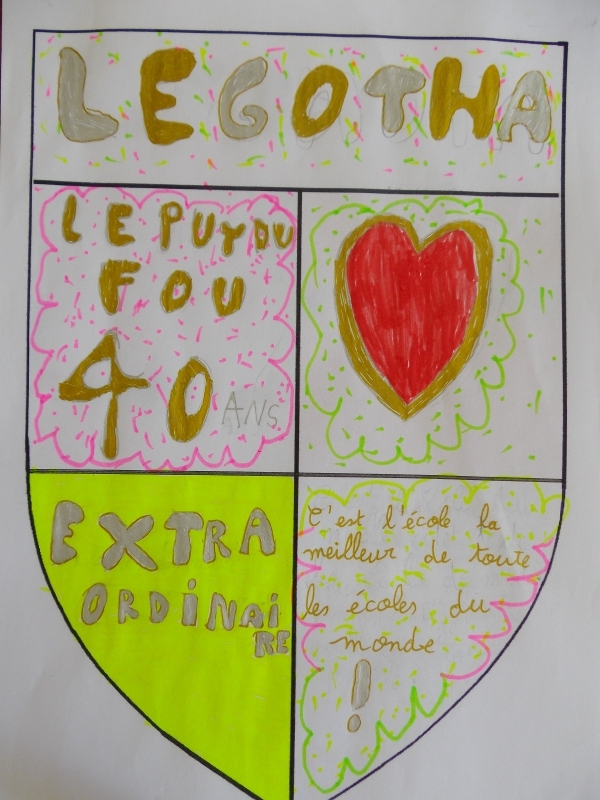 LEGOTHA
LE PUY DU
FOU
40 ANS
EXTRA
ORDiNAi
RE
C'est l'école la
meilleur de toute
les écoles du
monde
!